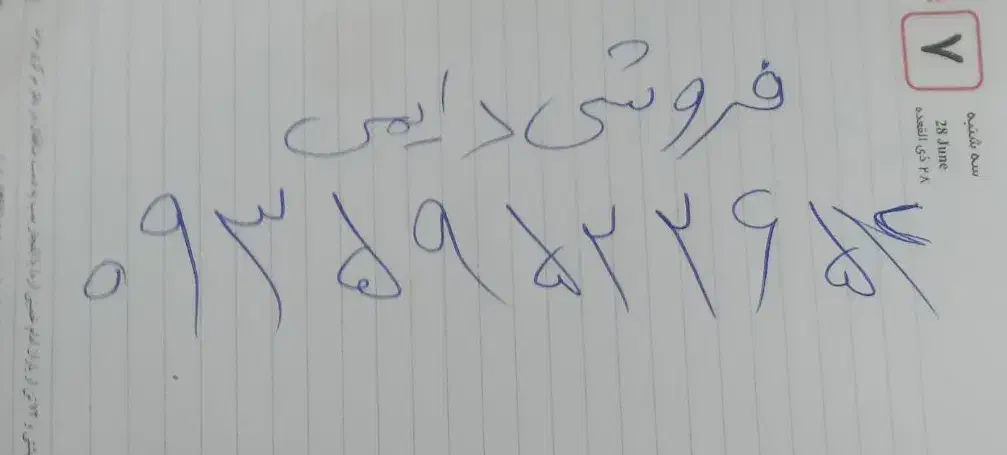 ۷
سه شنبه
28 June
۲۸ ذی القعده
فروش دایمی
۰۹۳۵۹۵۲۲۶۵۴